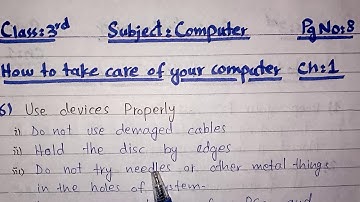 Class: 3rd Subject: Computer Pg No: 8
How to take care of your computer Ch: 1
6) Use devices Properly
i) Do not use demaged cables
ii) Hold the disc by edges
iii) Do not try needles or other metal things
in the holes of system.
and